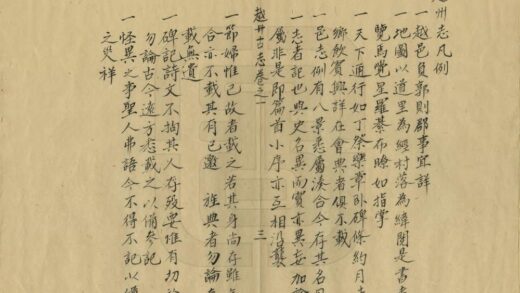 州志凡例
一越邑負郭則郡事宜詳
一地圖以道里為經村落為緯閱是書者
覽馬覺星羅棊布瞭如指掌
一天下通行如丁祭樂章卧碑條約月
鄉飲賓興詳在會典者俱不載
一邑志例有八景悉屬湊合今存其名
一志者記也與史名異而實亦異妄加論
屬非是即篇首小序亦互相沿襲
越州古志卷之一
三
一節婦惟已故者載之若其身尚存雖
合亦不載其有已邀 旌典者勿論存
載無遺
一碑記詩文不拘其人存歿要惟有切於
勿論古今遠方悉載之以備參記
一怪異之事聖人弗語今不得不記以備
之災祥